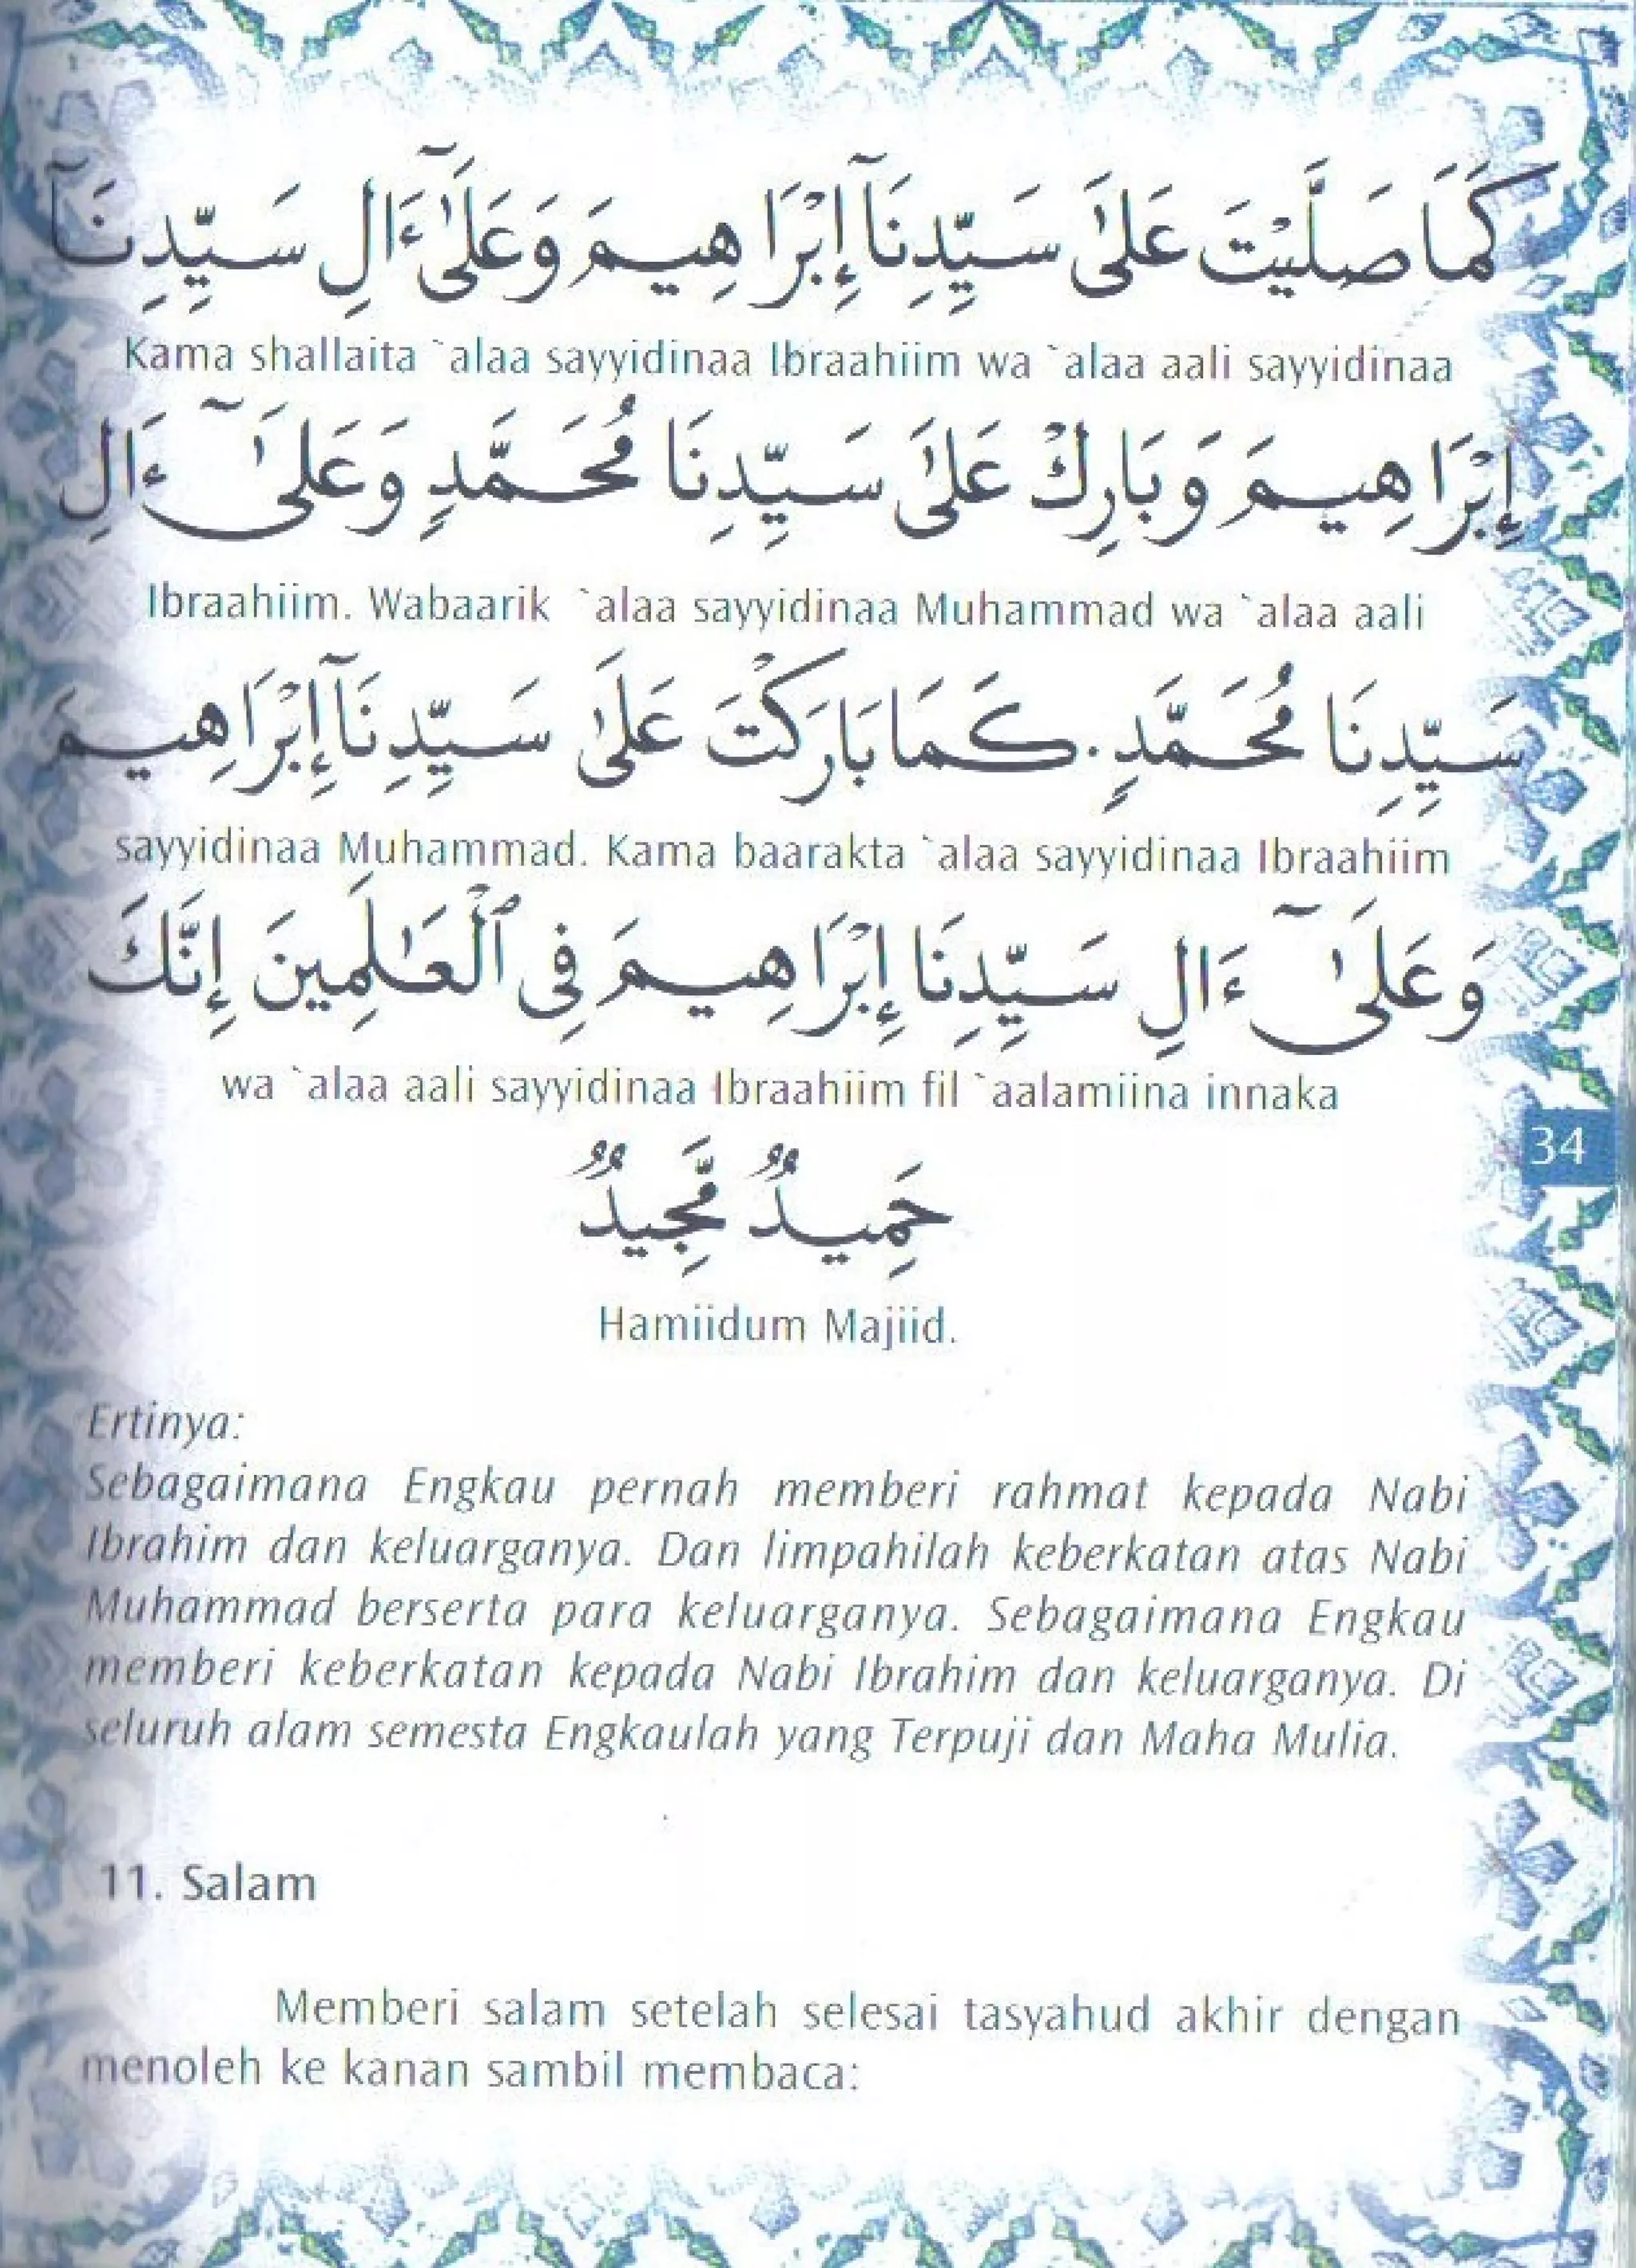 كَمَا صَلَّيْتَ عَلَىٰ سَيِّدِنَآ إِبْرَاهِيمَ وَعَلَىٰٓ ءَالِ سَيِّدِنَآ
Kama shallaita `alaa sayyidinaa Ibraahiim wa `alaa aali sayyidinaa
إِبْرَاهِيمَ وَبَارِكْ عَلَىٰ سَيِّدِنَا مُحَمَّدٍ وَعَلَىٰٓ ءَالِ
Ibraahiim. Wabaarik `alaa sayyidinaa Muhammad wa `alaa aali
سَيِّدِنَا مُحَمَّدٍ. كَمَا بَارَكْتَ عَلَىٰ سَيِّدِنَآ إِبْرَاهِيمَ
sayyidinaa Muhammad. Kama baarakta `alaa sayyidinaa Ibraahiim
وَعَلَىٰٓ ءَالِ سَيِّدِنَا إِبْرَاهِيمَ فِى ٱلْعَـٰلَمِينَ إِنَّكَ
wa `alaa aali sayyidinaa Ibraahiim fil `aalamiina innaka
34
حَمِيدٌ مَّجِيدٌ
Hamiidum Majiid.
Ertinya:
Sebagaimana Engkau pernah memberi rahmat kepada Nabi
Ibrahim dan keluarganya. Dan limpahilah keberkatan atas Nabi
Muhammad berserta para keluarganya. Sebagaimana Engkau
memberi keberkatan kepada Nabi Ibrahim dan keluarganya. Di
seluruh alam semesta Engkaulah yang Terpuji dan Maha Mulia.
11. Salam
Memberi salam setelah selesai tasyahud akhir dengan
menoleh ke kanan sambil membaca: